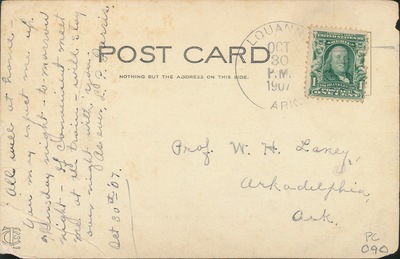 POST CARD
NOTHING BUT THE ADDRESS ON THIS SIDE.
LOUANN
OCT
30
P.M.
1907
ARK.
1
1
ONE CENT
Prof. W. H. Laney,
Arkadelphia,
Ark.
PC
090
All well at home.
You may expect me up
Sunday night - to-morrow
night - if convenient meet
me at train, will stay
over night with you.
Oct 30th '07.